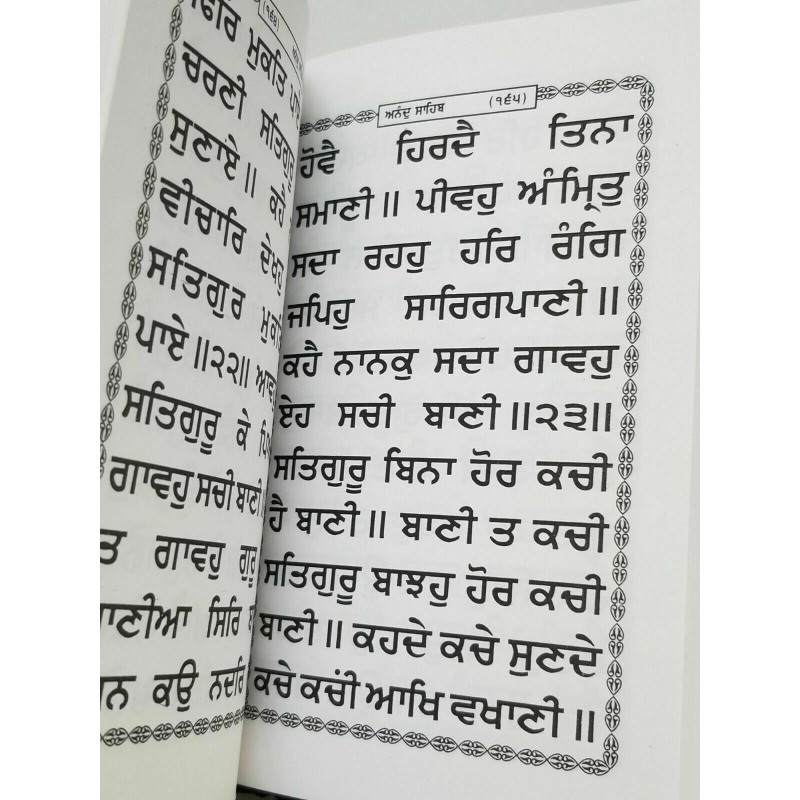 (੧੬੪)
ਮੁਕਤਿ
ਚਰਣੀ ਸਤਿਗੁਰ
ਸੁਣਾਏ॥ ਕਹੈ
ਵੀਚਾਰਿ ਦੇਖਹੁ
ਸਤਿਗੁਰ
ਪਾਏ॥੨੨॥
ਸਤਿਗੁਰੂ ਕੇ
ਗਾਵਹੁ ਸਚੀ ਬਾਣੀ
ਤ ਗਾਵਹੁ ਗੁਰੂ
ਸਿਰਿ
ਕਉ ਨਦਰਿ
ਅਨੰਦੁ ਸਾਹਿਬ (੧੬੫)
ਹੋਵੈ ਹਿਰਦੈ ਤਿਨਾ
ਸਮਾਣੀ॥ ਪੀਵਹੁ ਅੰਮ੍ਰਿਤੁ
ਸਦਾ ਰਹਹੁ ਹਰਿ ਰੰਗਿ
ਜਪਿਹੁ ਸਾਰਿਗਪਾਣੀ॥
ਕਹੈ ਨਾਨਕੁ ਸਦਾ ਗਾਵਹੁ
ਏਹ ਸਚੀ ਬਾਣੀ॥੨੩॥
ਸਤਿਗੁਰੂ ਬਿਨਾ ਹੋਰ ਕਚੀ
ਹੈ ਬਾਣੀ॥ ਬਾਣੀ ਤ ਕਚੀ
ਸਤਿਗੁਰੂ ਬਾਝਹੁ ਹੋਰ ਕਚੀ
ਬਾਣੀ॥ ਕਹਦੇ ਕਚੇ ਸੁਣਦੇ
ਕਚੇ ਕਚੀਂ ਆਖਿ ਵਖਾਣੀ॥